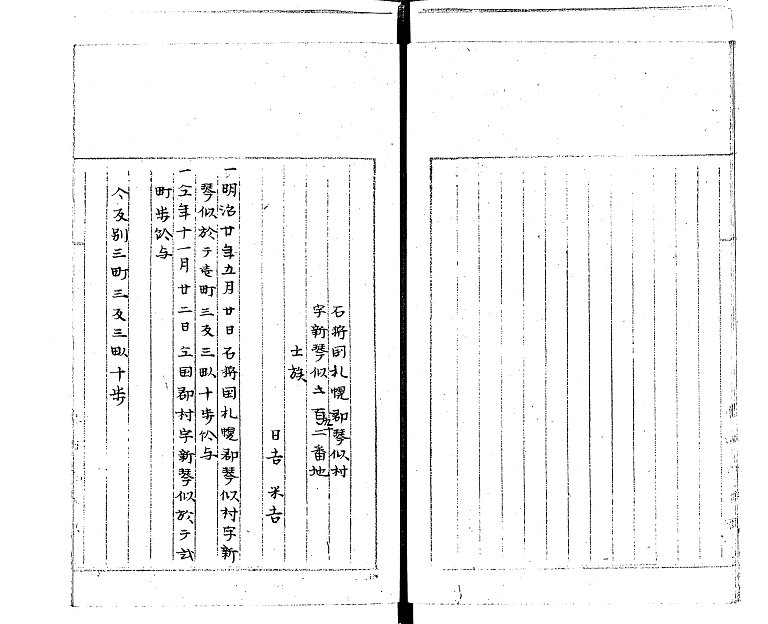 石狩国札幌郡琴似村
字新琴似土百九十二番地
士族
日吉 米吉
一明治廿年五月廿日石狩国札幌郡琴似村字新
琴似於テ壱町三反三畝十歩給与
一仝年十一月廿二日仝国郡村字新琴似於テ弐
町歩給与
合反別三町三反三畝十歩